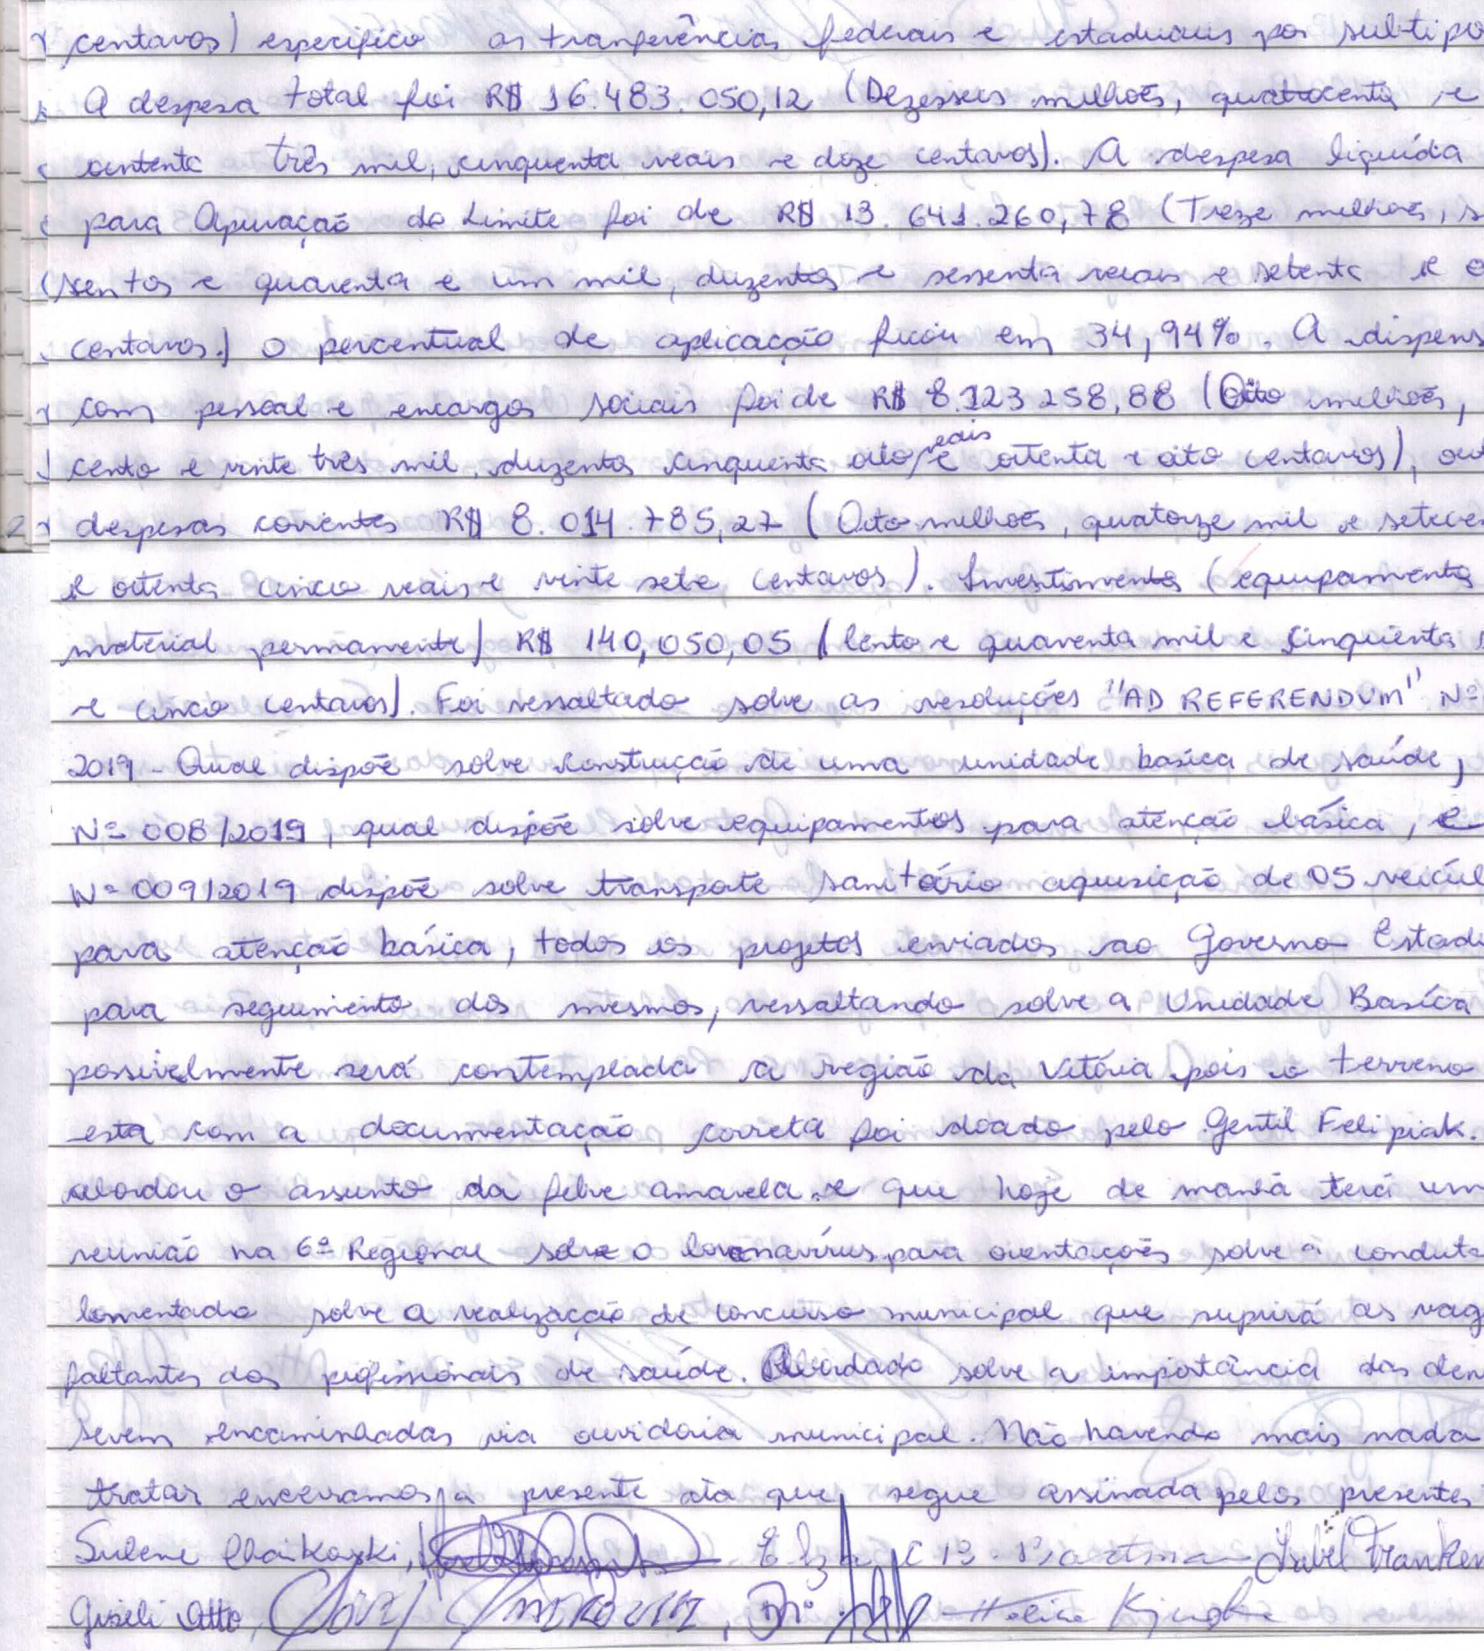 centavos) especifico as tranferências federais e estaduais por sub-tipo
A despesa total foi R$ 16.483.050,12 (Dezesseis milhões, quatrocenta e
oitenta três mil, cinquenta reais e doze centavos). A despesa liquída
para Apuração do Limite foi de R$ 13.641.260,78 (Treze milhões, s
sentos e quarenta e um mil, duzentos e sessenta reais e setenta e o
centavos.) O percentual de aplicação ficou em 34,94%. A dispens
com pessoal e encargos sociais foi de R$ 8.123258,88 (Oito milhões,
cento e vinte três mil duzentos cinquenta oito reais e oitenta e oito centavos), out
despesas correntes R$ 8.014.785,27 (Oito milhões, quatorze mil e setece
e oitenta cinco reais e vinte sete centavos). Investimentos (equipamentos
material permanente) R$ 140,050,05 (Cento e quarenta mil e cinquenta
e cinco centavos). Foi ressaltado sobre as resoluções "AD REFERENDUM" Nº
2019 - Qual dispõe sobre construção de uma unidade basíca de saúde,
Nº 008/2019, qual dispõe sobre equipamentos para atenção básica, e
Nº 009/2019 dispõe sobre transpote sanitário aquisição de 05 veícul
para atenção basíca, todos os projetos enviados ao Governo Estad
para seguimento dos mesmos, ressaltando sobre a Unidade Basíca
possivelmente será contemplada a região da Vitória pois o terreno
esta com a documentação correta foi doado pelo Gentil Felipiak.
abordou o assunto da febre amarela e que hoje de manhã terá um
reunião na 6ª Regional sobre o Coronavírus para orientações sobre a conduta
Comentado sobre a realização de concurso municipal que suprirá as vag
faltantes dos profissionais de saúde. Abordado sobre a importância das den
serem encaminhadas via ouvidoria municipal. Não havendo mais nada
tratar encerramos a presente ata que segue assinada pelos presentes
Franken
Giseli Otto,